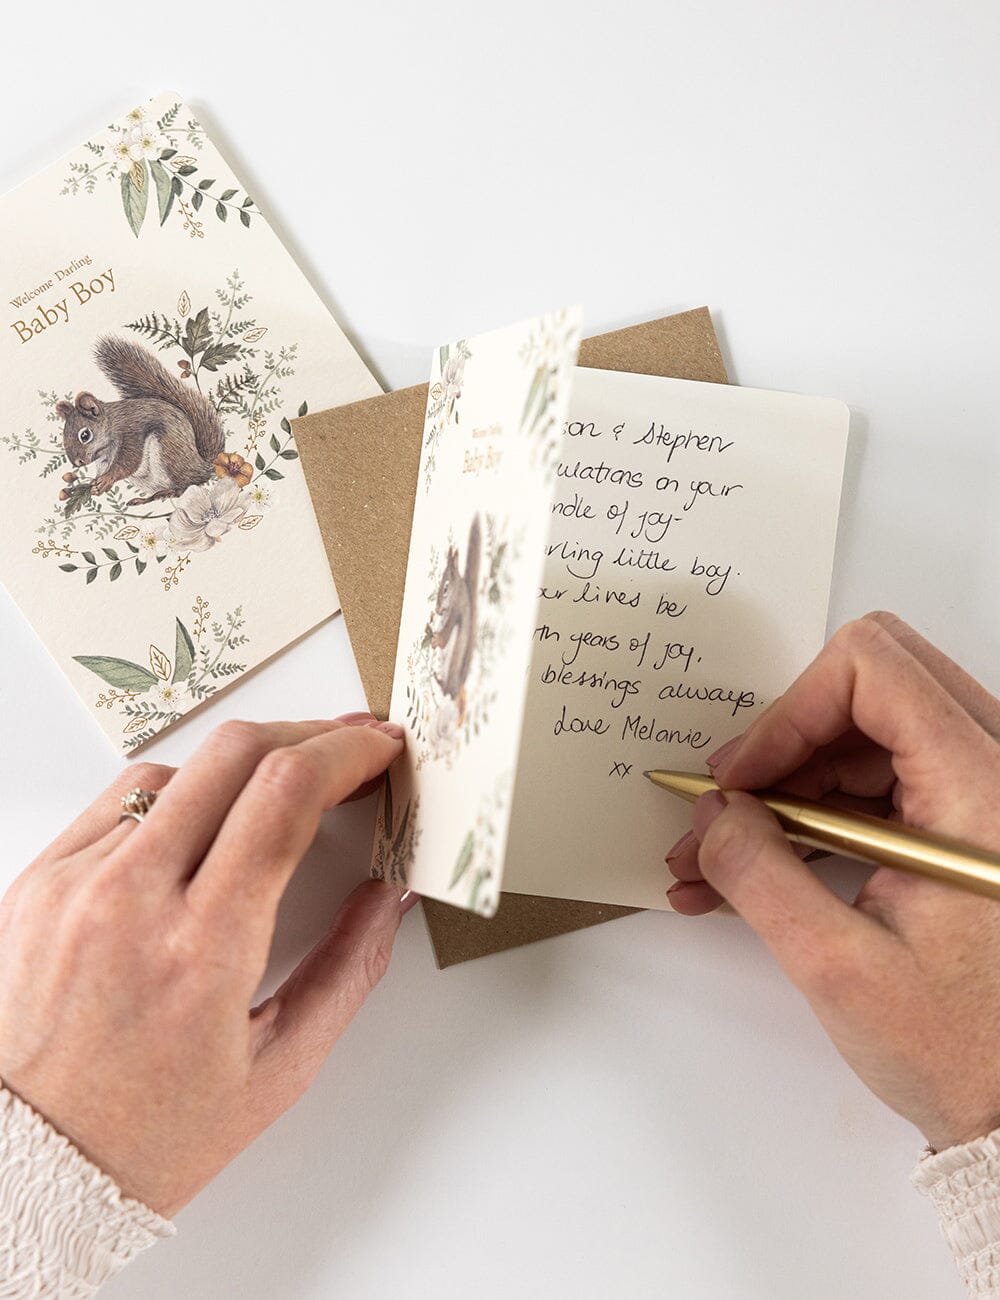 Welcome Darling
Baby Boy
Welcome Darling
Baby Boy
son & Stephen
ulations on your
ndle of joy-
arling little boy.
our lives be
ith years of joy,
blessings always.
Love Melanie
xx